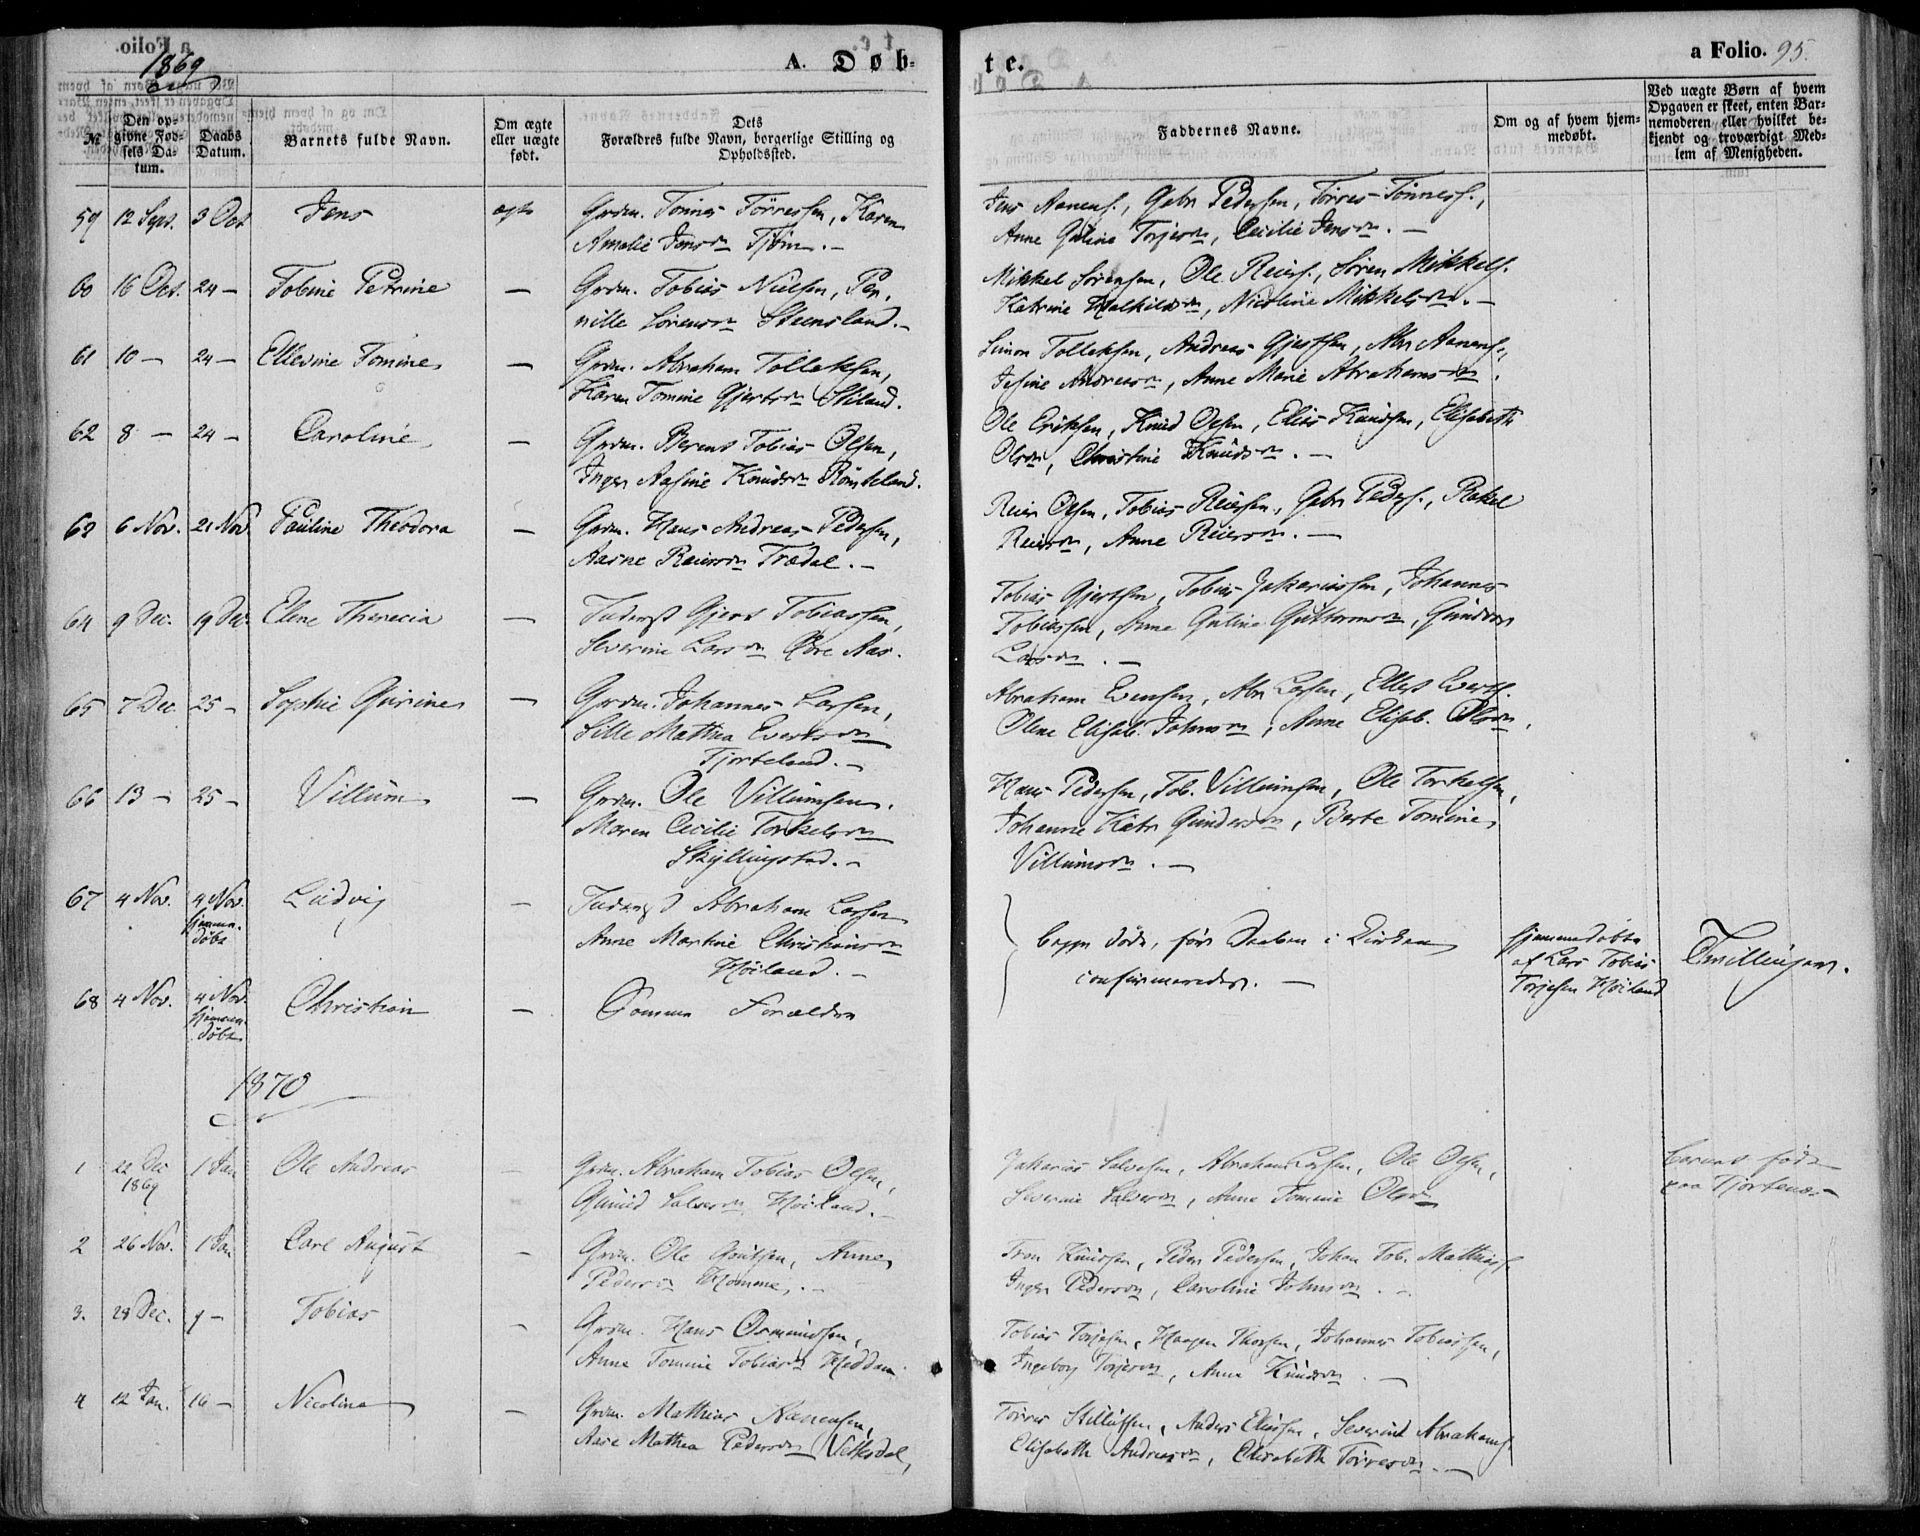 1869
A. Døb-
te.
a Folio. 95.
№
Den op-
givne Fød-
sels Da-
tum.
Daabs
Datum.
Barnets fulde Navn.
Om ægte
eller uægte
født.
Dets
Forældres fulde Navn, borgerlige Stilling og
Opholdssted.
Faddernes Navne.
Om og af hvem hjem-
medøbt.
Ved uægte Børn af hvem
Opgaven er skeet, enten Bar-
nemoderen eller hvilket be-
kjendt og troværdigt Med-
lem af Menigheden.
59 12 Sept. 3 Oct Jens ægte Grdm. Tønnes Tørressen, Karen
Amalie Jensdn Tjøm.-
Jens Aanens., Gabr Pedersen, Tørres Tønness.,
Anne Guline Torjesdn, Cecilie Jensdn. -
60 16 Oct. 24 - Tobine Petrine - Grdm. Tobias Nielsen, Per-
nille Sørensdn Steensland.-
Mikkel Sørensen, Ole Reiers., Søren Mikkels.
Katrine, Nicoline Mikkelsdn. -
61 10 - 24 - Ellevine Tomine - Grdm. Abraham Tollaksen,
Karen Tomine Gjertsdn Stiland.
Simon Tollaksen, Andreas Gjertsen, Abr Aanens.,
Josine Andreasdn, Anne Marie Abrahamsdn.
62 8 - 24 - Caroline - Grdm. Berent Tobias Olsen,
Inger Aasine Knudsdn Rømteland.
Ole Eriksen, Knud Olsen, Elias Knudsen, Elisabeth
Olsdn, Christine Knudsdn. -
63 6 Nov. 21 Nov Pauline Theodora - Grdm. Hans Andreas Pedersen,
Aasne Reiersdn Trædal.-
Reier Olsen, Tobias Reiersen, Gabr Peders., Rakel
Reiersdn, Anne Reiersdn. -
64 9 Dec. 19 Dec. Elene Therecia - Inderst Gjert Tobiassen,
Severine Larsdn Øvre Aas.
Tobias Gjertsen, Tobias Zakariassen, Johannes
Tobiassen, Anne Guline Guttormsdn, Gundvor
Larsdn. -
65 7 Dec. 25 - Sophie Gurine - Grdm. Johannes Larsen,
Sille Mathea Evertsdn
Fjorteland.-
Abraham Evensen, Abr Larsen, Ellert Everts.
Olene Elisab. Johnsdn, Anne Elisab. Olsdn.
66 13 - 25 - Villum - Grdm. Ole Villumsen.
Maren Cecilie Torkelsdn
Skyllingstad.-
Hans Pedersen, Tob. Villumsen, Ole Torkelsen,
Johanne Katr Gundersdn, Berte Tomine
Villumsdn. -
67 4 Nov. 4 Nov.
hjemme-
døbt
Ludvig - Inderst Abraham Larsen
Anne Martine Christiansdn
Høiland.-
begge døde, før Daaben i Kirken
confirmeredes. -
hjemmedøbte
af Lars Tobias
Torjesen Høiland
Tvillinger.
68 4 Nov. 4 Nov.
hjemme-
døbt
Christian - Samme Forældre
1870
1 22 Dec
1869
1 Jan Ole Andreas - Grdm. Abraham Tobias Olsen,
Gunild Salvesdn Høiland.-
Zakarias Salvesen, Abraham Larsen, Ole Olsen,
Severine Salvesdn, Anne Tomine Olsdn
barnet født
paa Fjortenes
2 26 Nov. 1 Jan Carl August - Grdm. Ole Knutsen, Anne
Pedersdn Homme.-
Tron Knudsen, Peder Pedersen, Johan Tob. Matthias.
Inger Pedersdn, Caroline Johnsdn. -
3. 28 Dec. 9 - Tobias - Grdm. Hans Osmundsen,
Anne Tomine Tobiasdn Heddan.
Tobias Torjesen, Haagen Thorsen, Johannes Tobiassen,
Ingeborg Torjesdn, Anne Knudsdn. -
4 12 Jan. 16 - Nicoline - Grdm. Mathias Aanensen,
Aase Mathea Pedersdn Vitksdal,
Tørres Stillufsen, Anders Eliassen, Severin Abrahams.
Elisabeth Andreasdn, Elisabeth Tørresdn. -